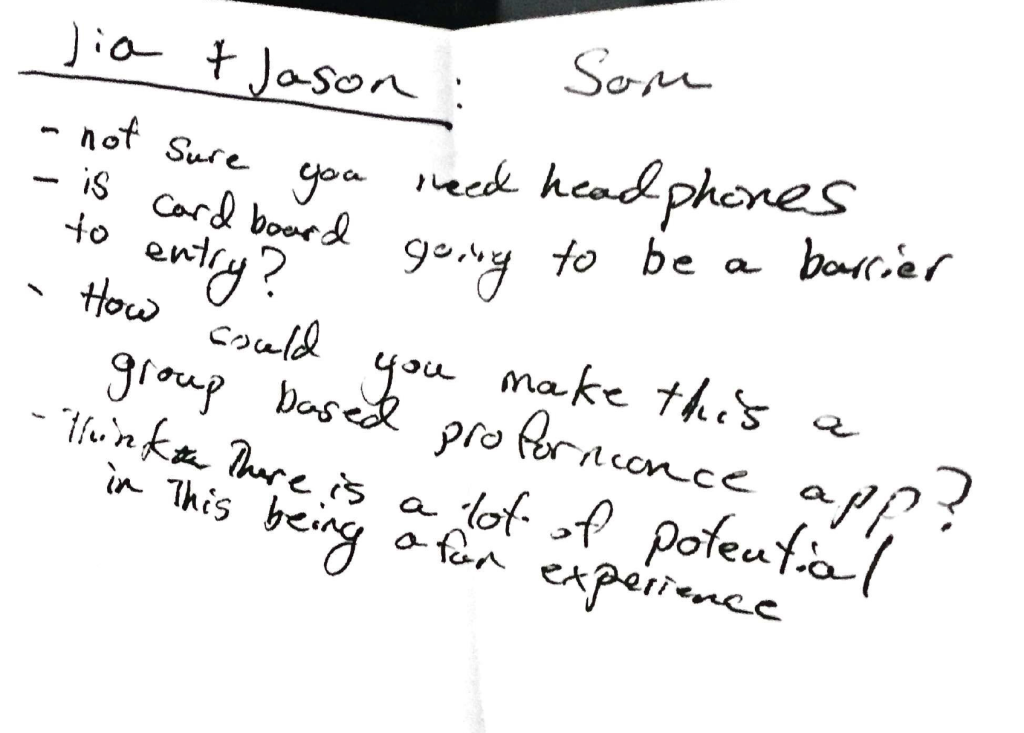 Jia + Jason: Sam
- not sure you need headphones
- is cardboard going to be a barrier
to entry?
- How could you make this a
group based proformance app?
- Think There is a lot of potential
in This being a fun experience